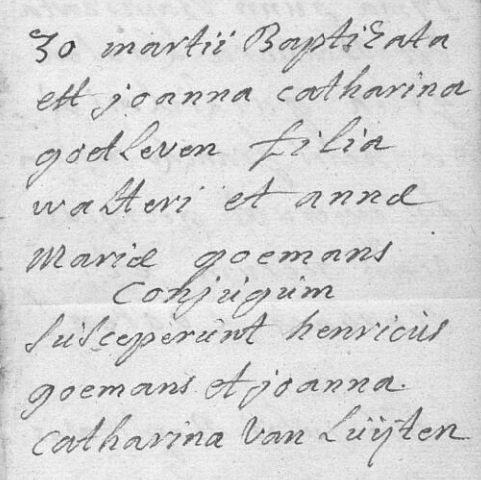 30 martii Baptizata
est joanna catharina
goetleven filia
walteri et annæ
Mariæ goemans
Conjugum
susceperunt henricus
goemans et joanna.
catharina Van Luijten